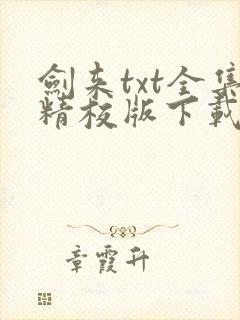 劍来txt全集
精校版下載
章霞升